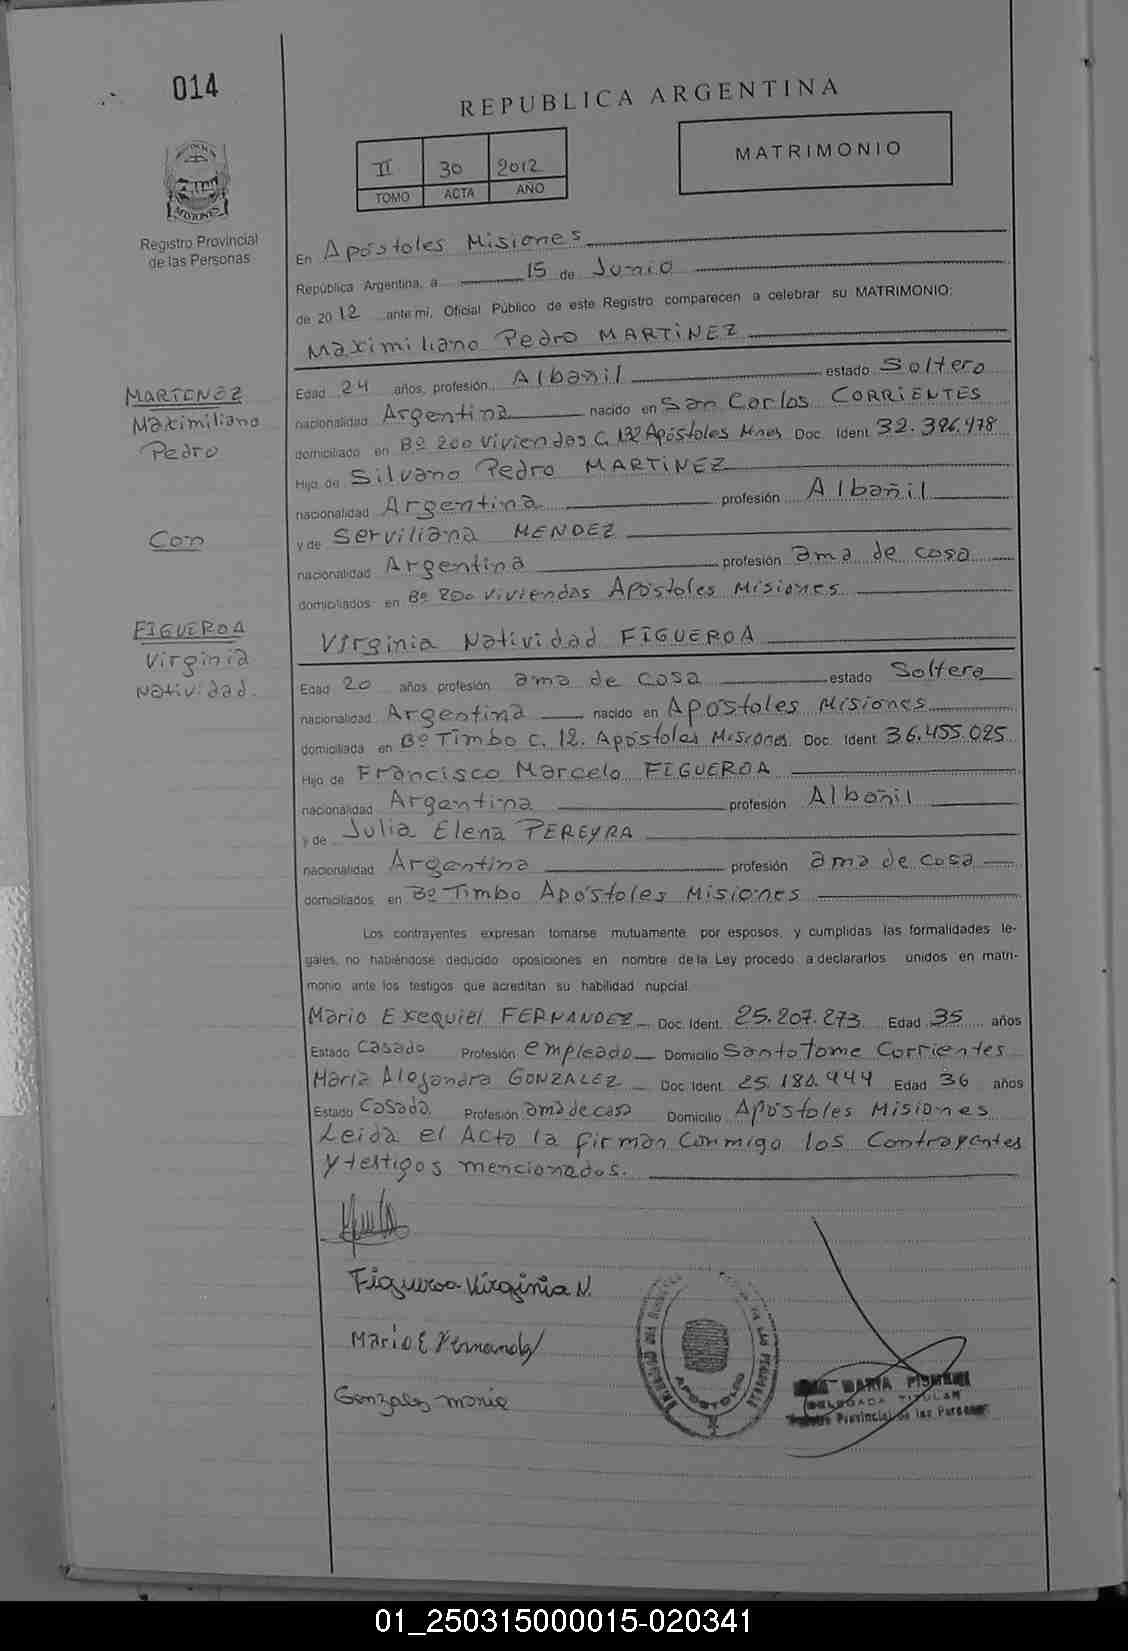 014
REPUBLICA ARGENTINA
II 30 2012
TOMO ACTA AÑO
MATRIMONIO
MISIONES
Registro Provincial
de las Personas
En Apóstoles Misiones
República Argentina, a 15 de Junio
de 2012 ante mi, Oficial Público de este Registro comparecen a celebrar su MATRIMONIO:
Maximiliano Pedro MARTINEZ
MARTINEZ
Maximiliano
Pedro
Con
FIGUEROA
Virginia
Natividad.
Edad 24 años, profesión Albañil estado Soltero
nacionalidad Argentina nacido en San Carlos CORRIENTES
domiciliado en Bº 200 Viviendas C. 132 Apóstoles Mnes Doc. Ident. 32.396.478
Hijo de Silvano Pedro MARTINEZ
nacionalidad Argentina profesión Albañil
y de Serviliana MENDEZ
nacionalidad Argentina profesión ama de casa
domiciliados en Bº 200 Viviendas Apóstoles Misiones
Virginia Natividad FIGUEROA
Edad 20 años profesión ama de casa estado Soltera
nacionalidad Argentina nacido en Apóstoles Misiones
domiciliada en Bº Timbo C. 12. Apóstoles Misiones Doc. Ident. 36.455.025
Hija de Francisco Marcelo FIGUEROA
nacionalidad Argentina profesión Albañil
y de Julia Elena PEREYRA
nacionalidad Argentina profesión ama de casa
domiciliados en Bº Timbo Apóstoles Misiones
Los contrayentes expresan tomarse mutuamente por esposos, y cumplidas las formalidades le-
gales, no habiéndose deducido oposiciones en nombre de la Ley procedo a declararlos unidos en matri-
monio ante los testigos que acreditan su habilidad nupcial.
Mario Exequiel FERNANDEZ Doc. Ident. 25.207.273 Edad 35 años
Estado Casado Profesión empleado Domicilio Santo Tome Corrientes
Maria Alejandra GONZALEZ Doc Ident. 25.180.444 Edad 36 años
Estado Casada Profesión ama de casa Domicilio Apóstoles Misiones
Leida el Acta la firman conmigo los contrayentes
y testigos mencionados.
Figueroa Virginia N.
Mario E Fernandez
Gonzalez Maria
APOSTOLES
MARIA
DELEGADA TITULAR
Provincial de las Personas
01_250315000015-020341